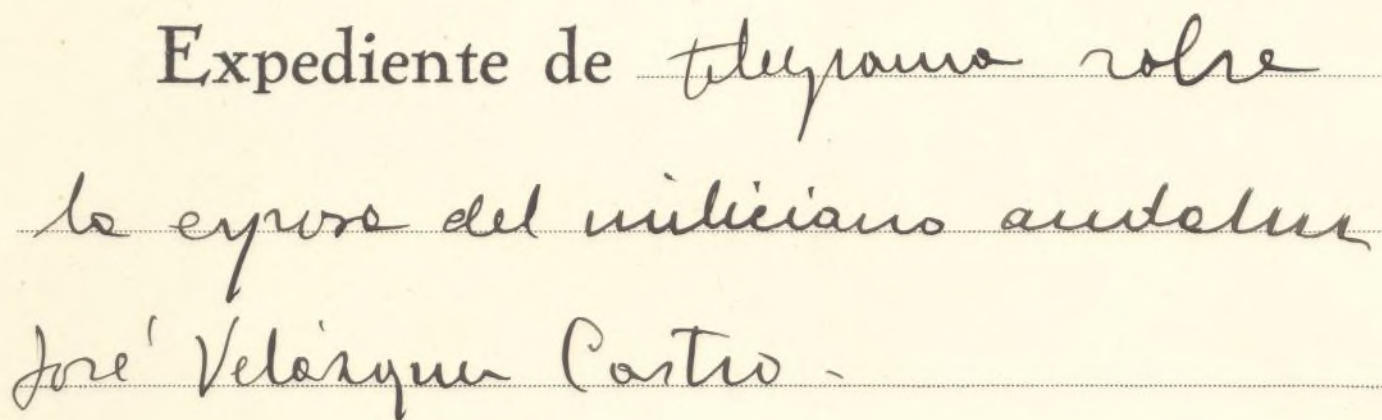 Expediente de telegrama sobre
la esposa del miliciano andaluz
José Velázquez Castro.